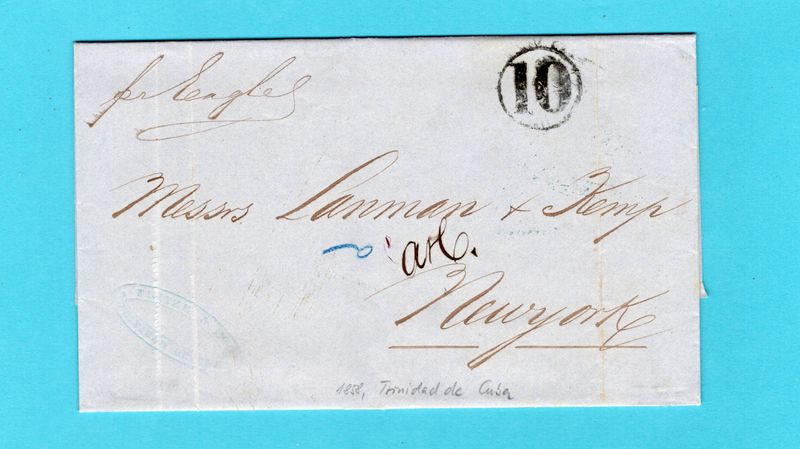 per Eagle
10
Messrs Lanman & Kemp
Newyork
1858, Trinidad de Cuba